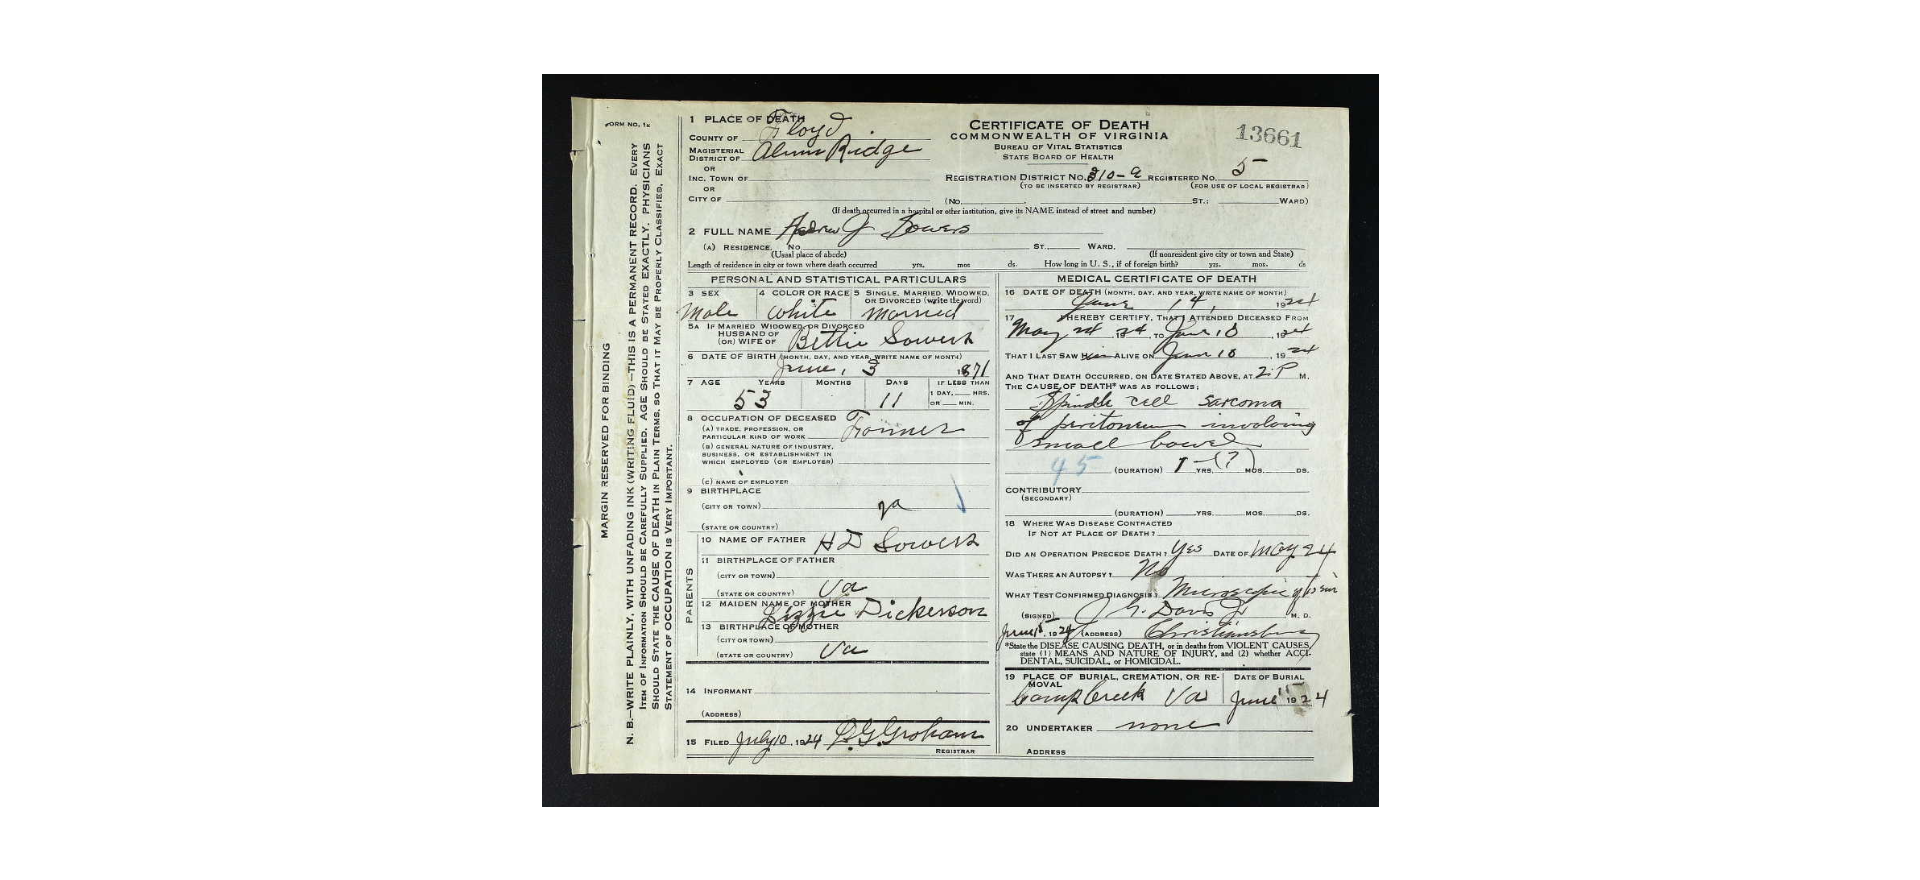 FORM NO. 1c
MARGIN RESERVED FOR BINDING
N. B.—WRITE PLAINLY, WITH UNFADING INK (WRITING FLUID)—THIS IS A PERMANENT RECORD. EVERY
ITEM OF INFORMATION SHOULD BE CAREFULLY SUPPLIED. AGE SHOULD BE STATED EXACTLY. PHYSICIANS
SHOULD STATE THE CAUSE OF DEATH IN PLAIN TERMS, SO THAT IT MAY BE PROPERLY CLASSIFIED. EXACT
STATEMENT OF OCCUPATION IS VERY IMPORTANT.
1 PLACE OF DEATH
COUNTY OF Floyd
MAGISTERIAL DISTRICT OF Alum Ridge
OR
INC. TOWN OF
OR
CITY OF
CERTIFICATE OF DEATH
COMMONWEALTH OF VIRGINIA
BUREAU OF VITAL STATISTICS
STATE BOARD OF HEALTH
13661
REGISTRATION DISTRICT NO. 310-a REGISTERED NO. 5
(TO BE INSERTED BY REGISTRAR) (FOR USE OF LOCAL REGISTRAR)
(No. ST.; WARD)
(If death occurred in a hospital or other institution, give its NAME instead of street and number)
2 FULL NAME J Sowers
(A) RESIDENCE. No. ST. WARD.
(Usual place of abode) (If nonresident give city or town and State)
Length of residence in city or town where death occurred yrs. mos ds. How long in U. S., if of foreign birth? yrs. mos. ds
PERSONAL AND STATISTICAL PARTICULARS
3 SEX Male
4 COLOR OR RACE White
5 SINGLE, MARRIED, WIDOWED, OR DIVORCED (write the word) Married
5A IF MARRIED WIDOWED, OR DIVORCED
HUSBAND OF
(OR) WIFE OF Bettie Sowers
6 DATE OF BIRTH (MONTH, DAY, AND YEAR, WRITE NAME OF MONTH)
June, 3 1871
7 AGE YEARS MONTHS DAYS IF LESS THAN
1 DAY, HRS.
OR MIN.
53 11
8 OCCUPATION OF DECEASED
(A) TRADE, PROFESSION, OR
PARTICULAR KIND OF WORK Farmer
(B) GENERAL NATURE OF INDUSTRY,
BUSINESS, OR ESTABLISHMENT IN
WHICH EMPLOYED (OR EMPLOYER)
(C) NAME OF EMPLOYER
9 BIRTHPLACE
(CITY OR TOWN) Va
(STATE OR COUNTRY)
PARENTS
10 NAME OF FATHER H D Sowers
11 BIRTHPLACE OF FATHER
(CITY OR TOWN)
(STATE OR COUNTRY) Va
12 MAIDEN NAME OF MOTHER Lizzie Dickerson
13 BIRTHPLACE OF MOTHER
(CITY OR TOWN)
(STATE OR COUNTRY) Va
14 INFORMANT
(ADDRESS)
15 FILED July 10, 1924 Graham
REGISTRAR
MEDICAL CERTIFICATE OF DEATH
16 DATE OF DEATH (MONTH, DAY, AND YEAR, WRITE NAME OF MONTH)
June 14, 1924
17 I HEREBY CERTIFY, THAT I ATTENDED DECEASED FROM
May 1924, TO June 10, 1924
THAT I LAST SAW him ALIVE ON June 10, 1924
AND THAT DEATH OCCURRED, ON DATE STATED ABOVE, AT 2 P M.
THE CAUSE OF DEATH* WAS AS FOLLOWS:
Spindle cell sarcoma
of peritoneum involving
small bowel
45 (DURATION) 1 YRS. (?) MOS. DS.
CONTRIBUTORY
(SECONDARY)
(DURATION) YRS. MOS. DS.
18 WHERE WAS DISEASE CONTRACTED
IF NOT AT PLACE OF DEATH?
DID AN OPERATION PRECEDE DEATH? Yes DATE OF May 24
WAS THERE AN AUTOPSY? No
WHAT TEST CONFIRMED DIAGNOSIS? Microscopic
(SIGNED) Davis M. D.
June 15, 1924 (ADDRESS) Christiansburg
*State the DISEASE CAUSING DEATH, or in deaths from VIOLENT CAUSES,
state (1) MEANS AND NATURE OF INJURY, and (2) whether ACCI-
DENTAL, SUICIDAL, or HOMICIDAL.
19 PLACE OF BURIAL, CREMATION, OR RE-
MOVAL DATE OF BURIAL
Camp Creek Va June 1924
20 UNDERTAKER none
ADDRESS